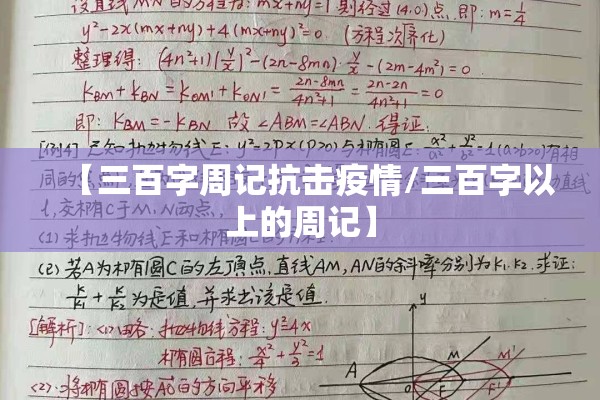 设直线MN的方程为: mx+ny=1 则经过(4,0)点, 即: m=1/4
y²-2x(mx+ny)+4(mx+ny)²=0 (方程次齐化)
整理得: (4n²+1)(y/x)²-(2n-8mn)·y/x-(2m-4m²)=0
k_BM+k_BN=k_OM1+k_ON1=(2n-8mn)/(4n²+1)=(2n-2n)/(4n²+1)=0
即: k_BM=-k_BN 故∠ABM=∠ABN. 得证.
[例4] 已知抛物线E: y²=2px(p>0)与椭圆C: x²/a²+y²/b²=1(a>b>0)有相
同的焦点
【三百字周记抗击疫情/三百字以
上的周记】
动直线
l,交椭圆C于M、N两点,
(1)求抛物线E和椭圆C的方程.
(2)若A为椭圆C的左顶点,直线AM,AN的斜率分别为k₁.k₂.求证:
k/k₁+k/k₂为定值.并求出该定值.
[解析]: <1>由名: 抛物线方程: y²=4x
椭圆方程: x²/4+y²/3=1
<2>·将椭圆按AO的方向平移
y
M M'
A O F F'